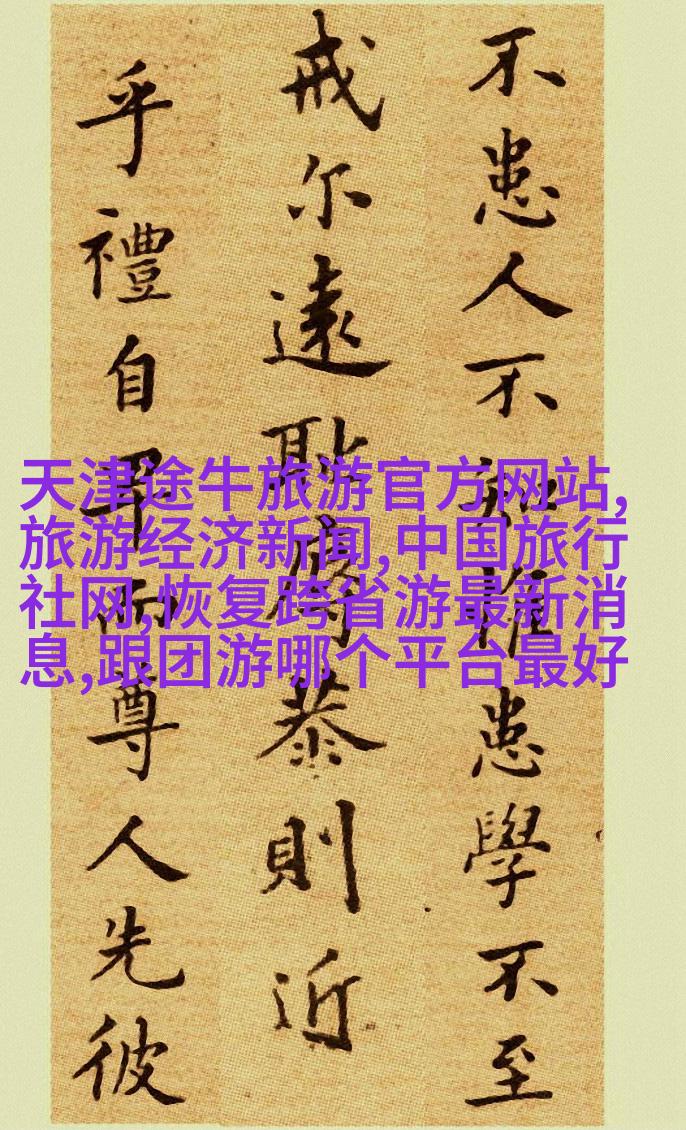 不患人不知惟患學不至
戒尔遠耻辱恭則近
乎禮自卑而尊人先彼
天津途牛旅游官方网站,
旅游经济新闻,中国旅行
社网,恢复跨省游最新消
息,跟团游哪个平台最好